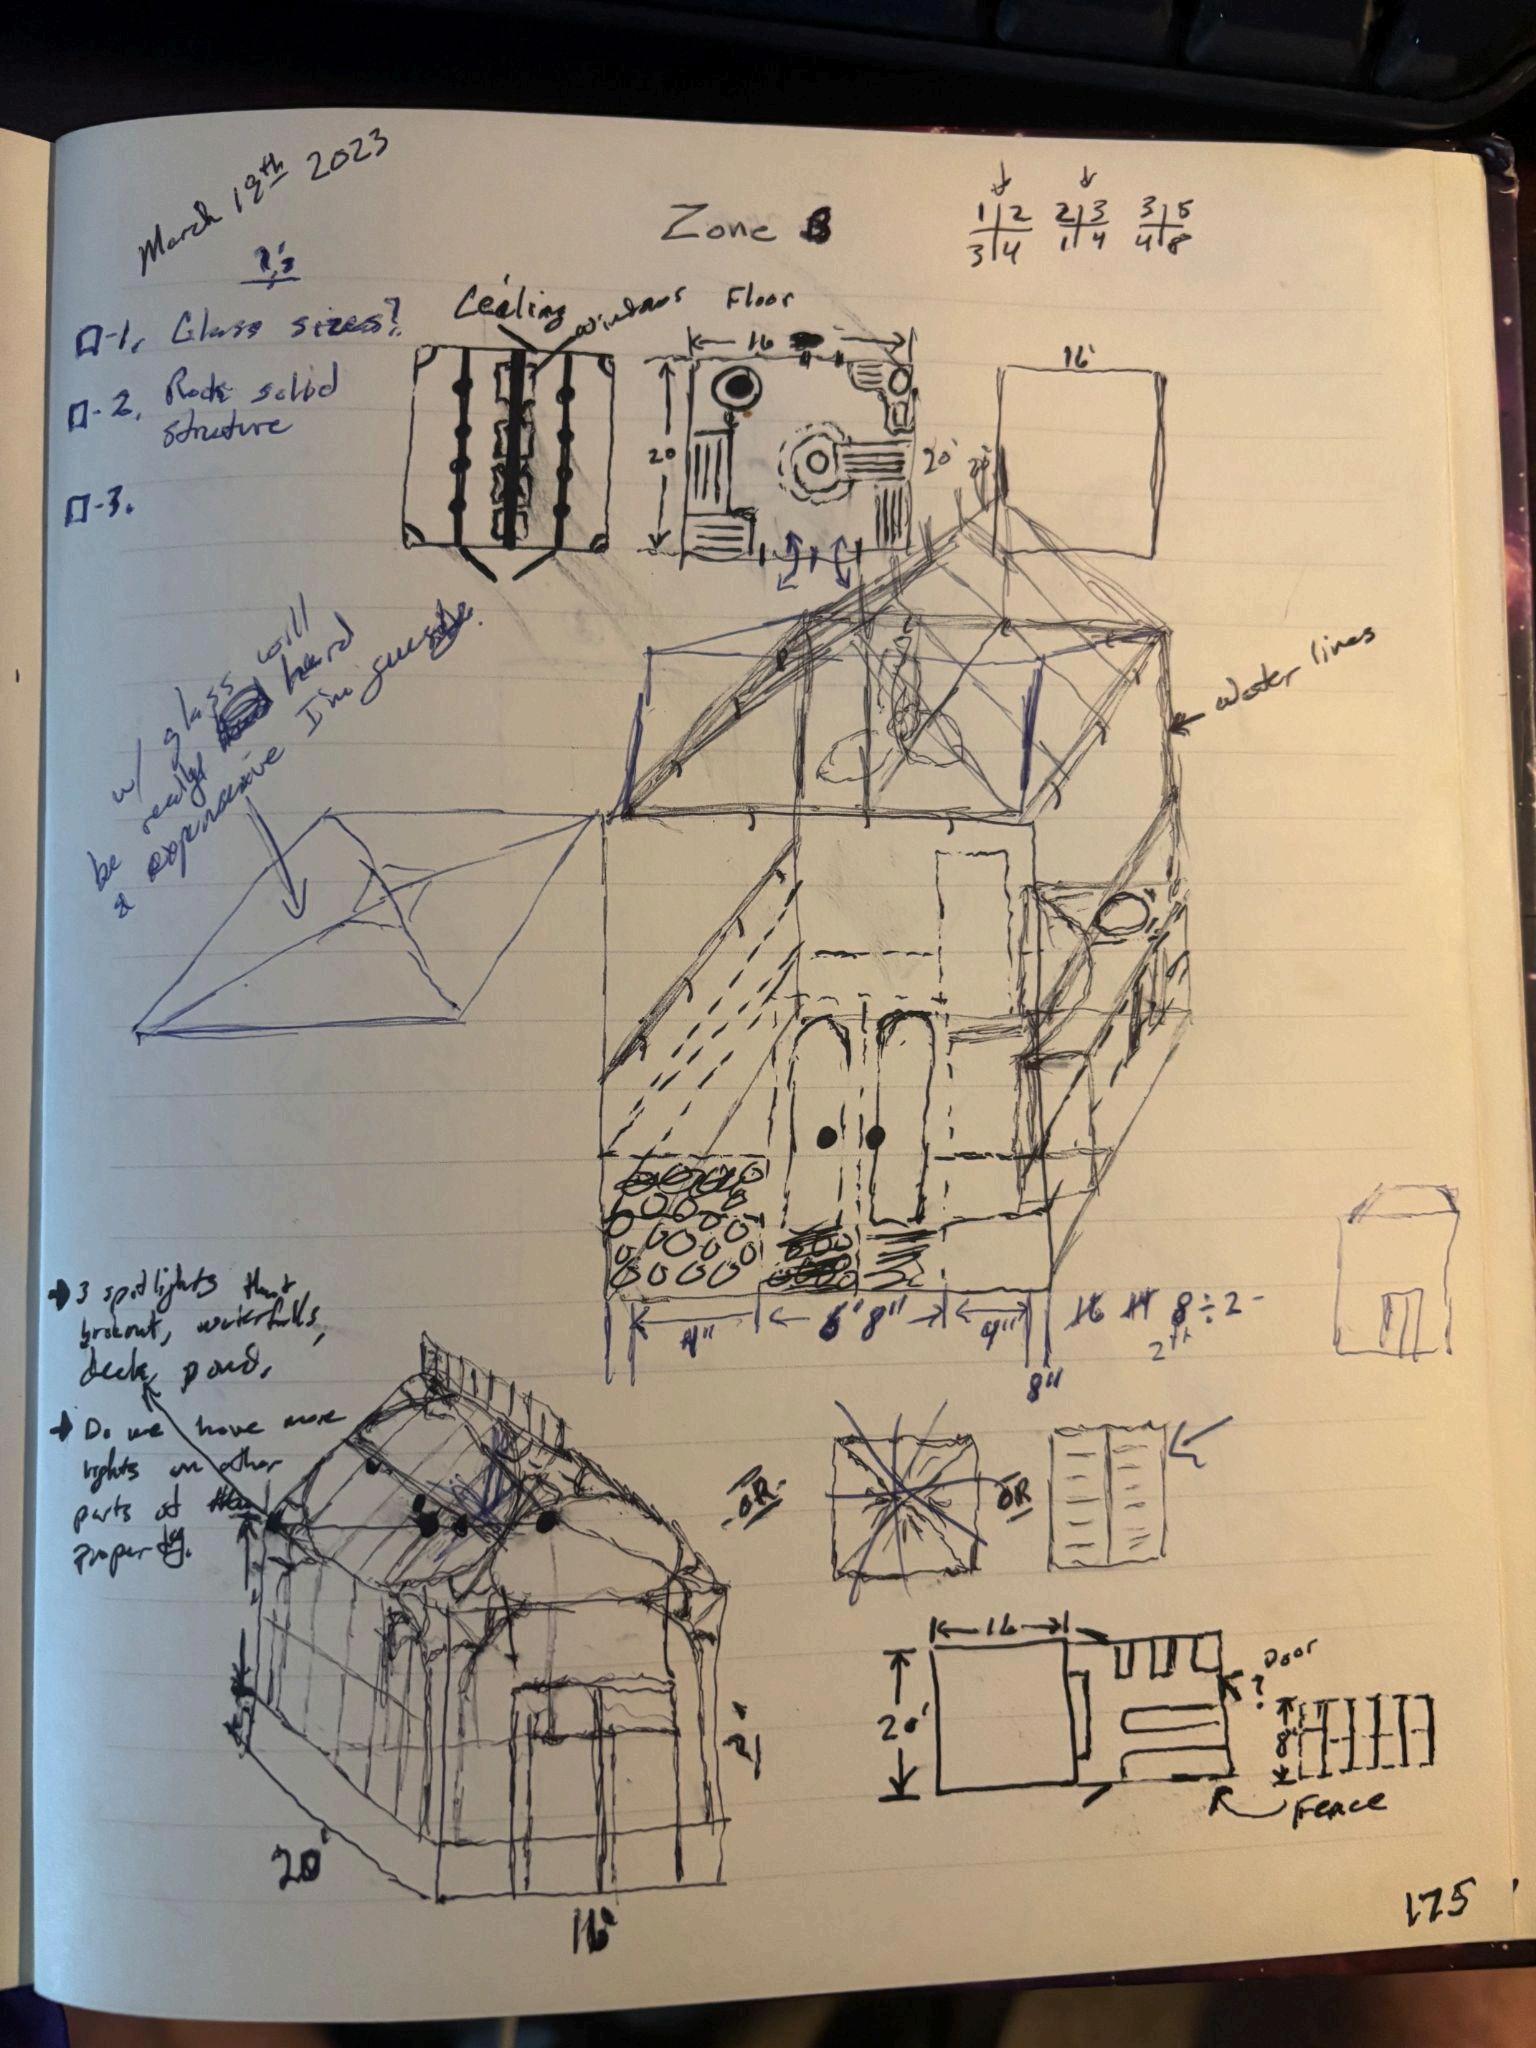 March 18th 2023
Zone B
1 2 2 3 3 5
3 4 1 4 4 8
?'s
1. Glass sizes?
2. Rock solid
structure
3.
Ceiling
windows
Floor
16
20
20'
16'
20'
w/ glass will
be really hard
& expensive I'm guessing.
Water lines
4"
8"
4"
8"
8÷2-
→ 3 spotlights that
waterfalls,
deck, pond,
→ Do we have more
lights on other
parts of the
Property.
OR
OR
20'
16'
16
20'
Door
?
8'
Fence
175